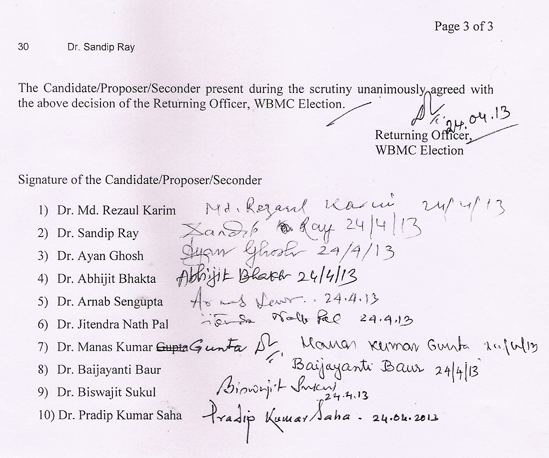 Page 3 of 3
30 Dr. Sandip Ray
The Candidate/Proposer/Seconder present during the scrutiny unanimously agreed with
the above decision of the Returning Officer, WBMC Election.
24.04.13
Returning Officer,
WBMC Election
Signature of the Candidate/Proposer/Seconder
1) Dr. Md. Rezaul Karim Md. Rezaul Karim 24/4/13
2) Dr. Sandip Ray Sandip Ray 24/4/13
3) Dr. Ayan Ghosh Ayan Ghosh 24/4/13
4) Dr. Abhijit Bhakta Abhijit Bhakta 24/4/13
5) Dr. Arnab Sengupta 24.4.13
6) Dr. Jitendra Nath Pal Nath Pal 24.4.13
7) Dr. Manas Kumar Gupta Gunta Manas Kumar Gunta 24/4/13
8) Dr. Baijayanti Baur Baijayanti Baur 24/4/13
9) Dr. Biswajit Sukul Biswajit Sukul 24.4.13
10) Dr. Pradip Kumar Saha Pradip Kumar Saha - 24.04.2013